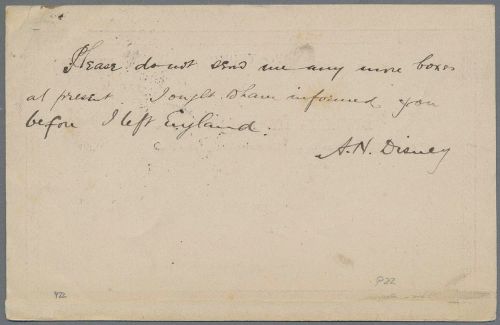 Please do not send me any more boxes
at present I ought to have informed you
before I left England.
A.N. Disney
P22
P22